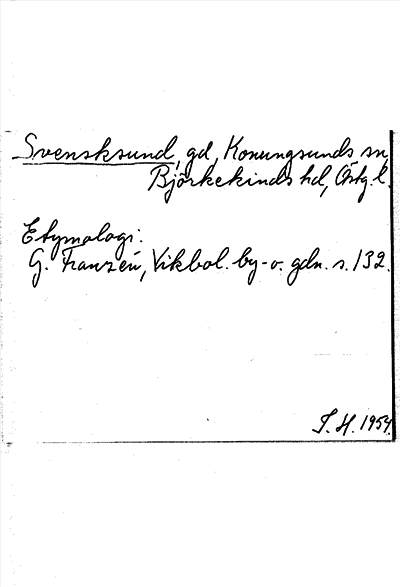 Svensksund, gd, Konungsunds sn,
Björkekinds hd, Östg. l.
Etymologi:
G. Franzén, Vikbol. by- o. gdn. s. 132.
S. H. 1954.